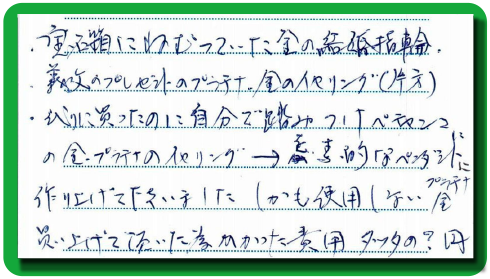 ・宝石箱にねむっていた金の結婚指輪、
義父のプレゼントのプラチナ、金のイヤリング(片方)
・代りに買ったのに自分で踏みつけペチャンコに
の金・プラチナのイヤリング→素的なペンダントに
作り上げて下さいました しかも使用しない プラチナ 金
買い上げて頂いた為かかった費用 タッタの?円